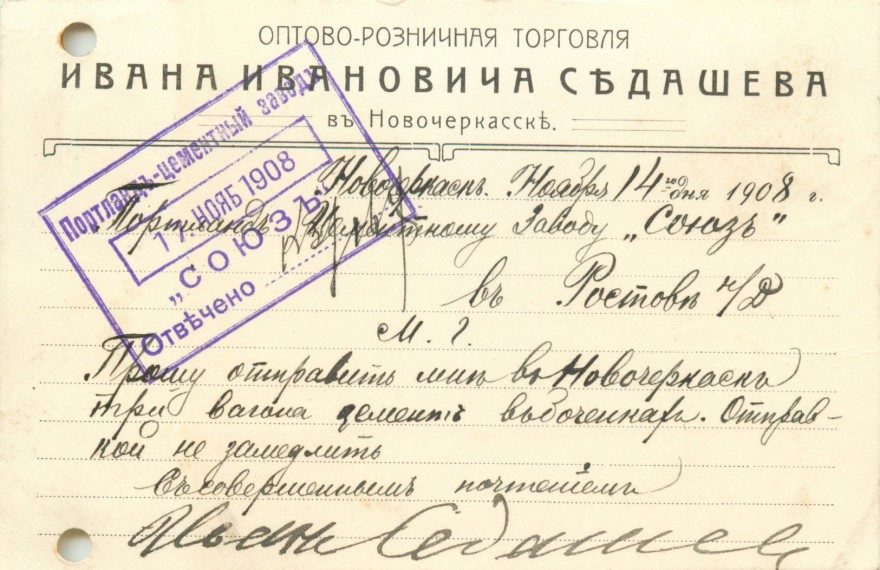 ОПТОВО-РОЗНИЧНАЯ ТОРГОВЛЯ
ИВАНА ИВАНОВИЧА СѢДАШЕВА
въ Новочеркасскѣ.
Портландъ-цементный заводъ
17. НОЯБ 1908
„СОЮЗЪ"
Отвѣчено
Новочеркаскъ. Ноября 14 го дня 1908 г.
Портландъ Цементному Заводу „Союзъ"
въ Ростовѣ н/Д
М. г.
Прошу отправить мнѣ въ Новочеркаскъ
три вагона цемента въ боченкахъ. Отправ-
кой не замедлить
Съ совершеннымъ почтеніемъ
Иванъ Седашев